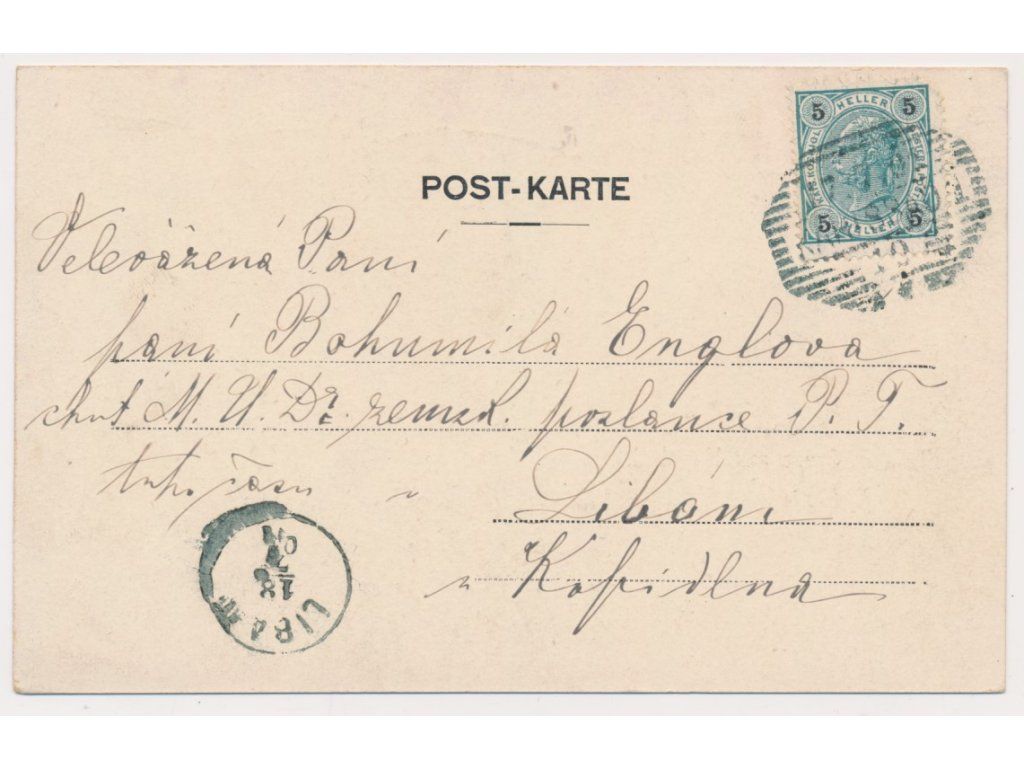 5 HELLER 5
5 HELLER 5
POST-KARTE
Velevážená Paní
paní Bohumilá Englova
chot M. U. Dr. zemsk. poslance P. T.
toho času v
Libáni
u Kopidlna
LIBAŇ
18